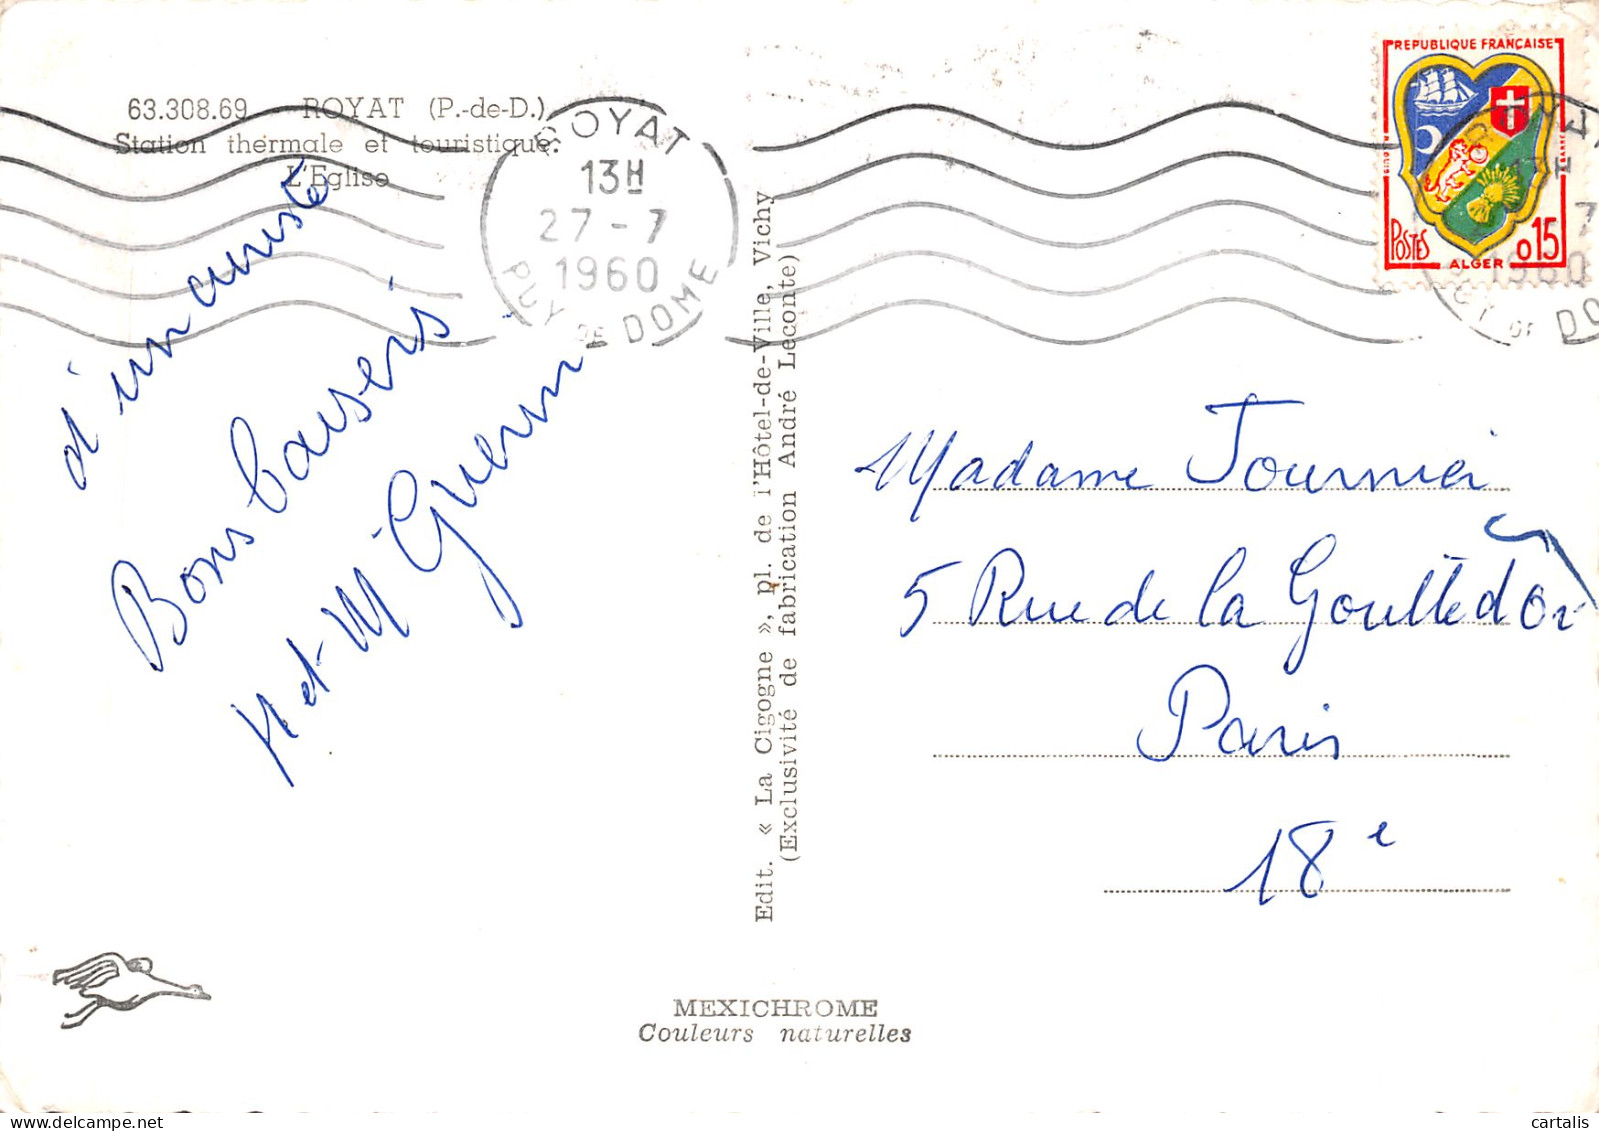 63.308.69 ROYAT (P.-de-D.)
Station thermale et touristique.
L'Eglise
ROYAT
13H
27-7
1960
PUY DE DOME
REPUBLIQUE FRANÇAISE
POSTES
0.15
ALGER
1960
d'un curiste
Bons baisers
M et M Guerin
Edit. « La Cigogne », pl. de l'Hôtel-de-Ville, Vichy
(Exclusivité de fabrication André Leconte)
Madame Tournier
5 Rue de la Goutte d'Or
Paris
18e
MEXICHROME
Couleurs naturelles
cartalis